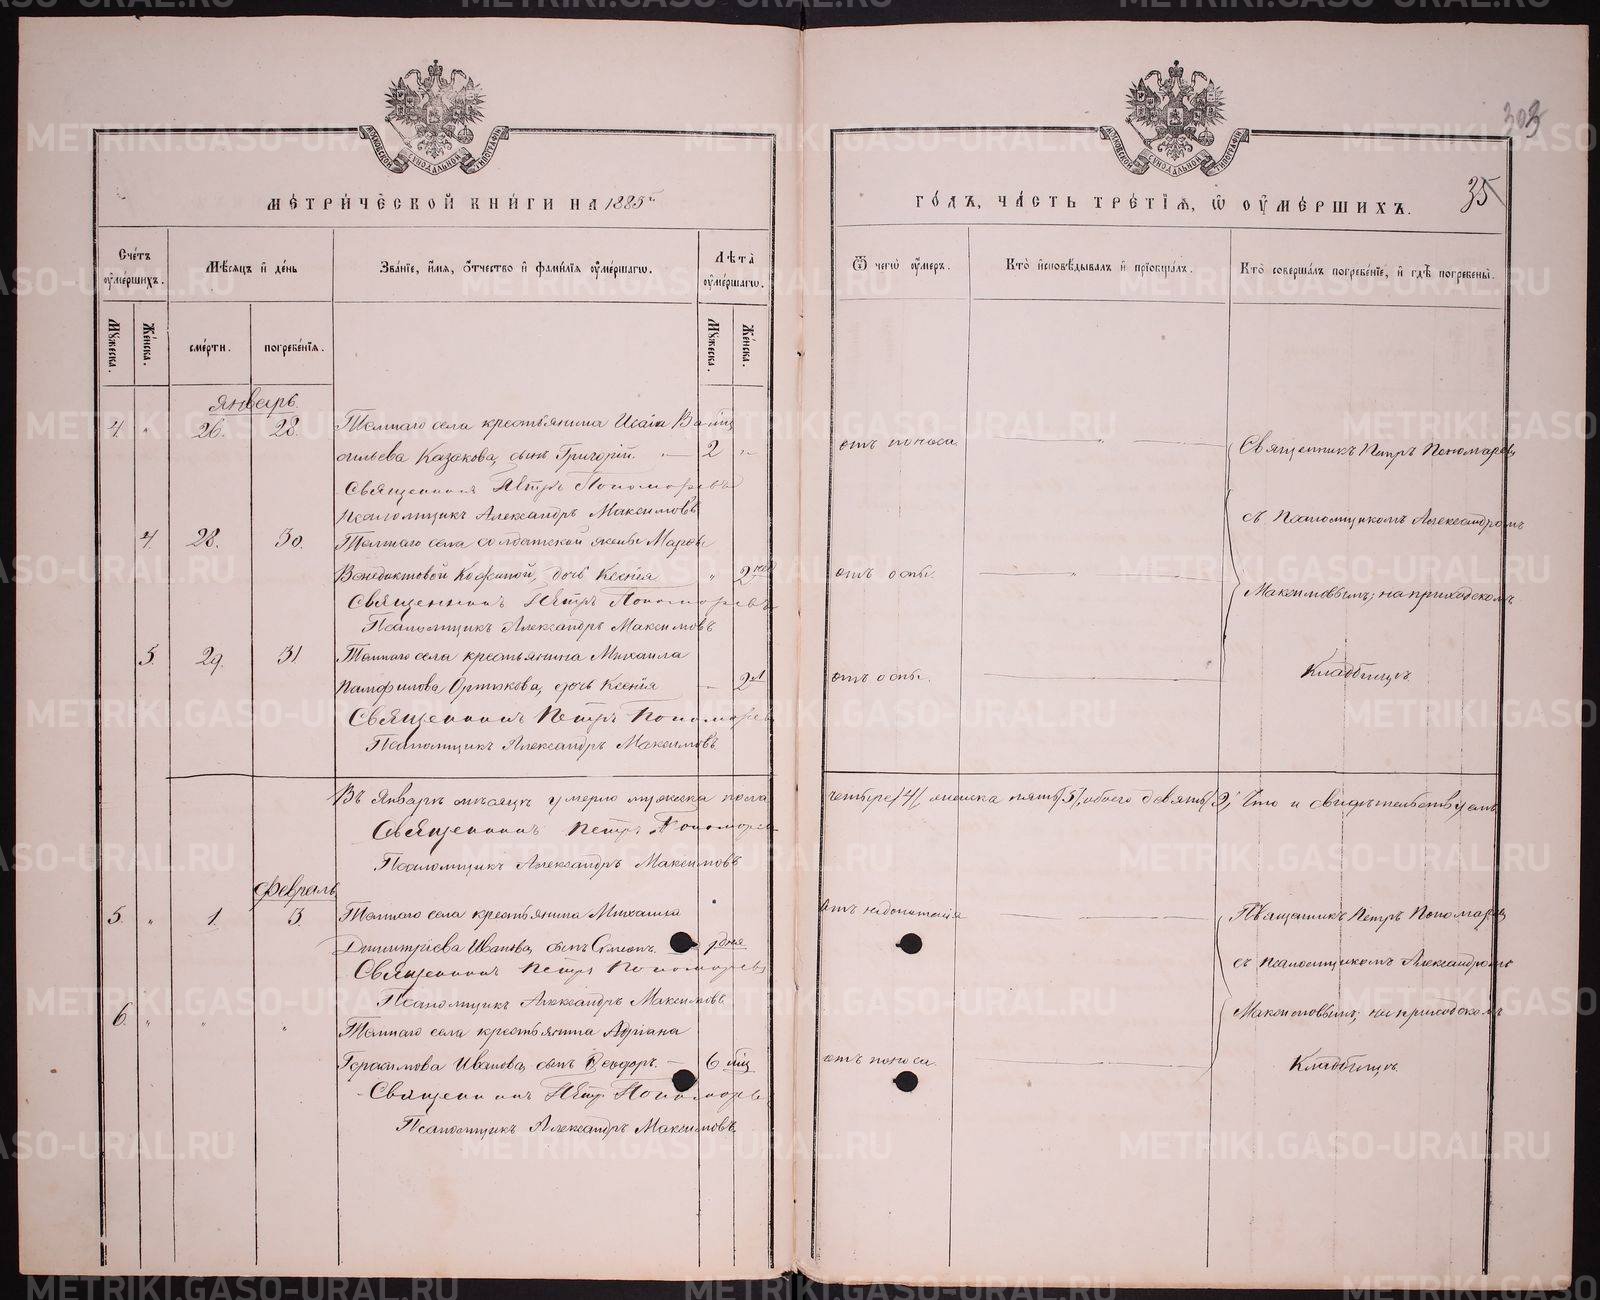 МОСКОВСКОЙ СѴНОДАЛЬНОЙ ТИПОГРАФІИ
МЕТРИЧЕСКОЙ КНИГИ НА 1885й
Счетъ оумершихъ.
Мѣсяцъ и день
Званіе, имя, отчество и фамилія оумершагѡ.
Лѣта оумершагѡ.
Мужеска.
Женска.
смерти.
погребенія.
Мужеска.
Женска.
Январь.
4. " 26. 28. Темнаго села крестьянина Исаіи Ва мц
сильева Казакова, сынъ Григорій. — 2 "
Священникъ Петръ Пономаревъ
Псаломщикъ Александръ Максимовъ
4. 28. 30. Темнаго села солдатской жены Марѳы
Венедиктовой дочь Ксенія " 2
Священникъ Петръ Пономаревъ
Псаломщикъ Александръ Максимовъ
5. 29. 31 Темнаго села крестьянина Михаила
Памфилова дочь Ксенія — 2
Священникъ Петръ Пономаревъ
Псаломщикъ Александръ Максимовъ
Въ Январѣ мѣсяцѣ умерло мужеска пола
Священникъ Петръ Пономаревъ
Псаломщикъ Александръ Максимовъ
Февраль
5. " 1. 3. Темнаго села крестьянина Михаила
Димитріева Иванова, сынъ Симеонъ. 1 дня
Священникъ Петръ Пономаревъ
Псаломщикъ Александръ Максимовъ
6. " " " Темнаго села крестьянина Адріана
Герасимова Иванова, сынъ Ѳеодоръ. — 6 мц
Священникъ Петръ Пономаревъ
Псаломщикъ Александръ Максимовъ
303
35
МОСКОВСКОЙ СѴНОДАЛЬНОЙ ТИПОГРАФІИ
ГОДЪ, ЧАСТЬ ТРЕТІЯ, Ѡ ОУМЕРШИХЪ.
Ѿ чегѡ оумеръ.
Кто исповѣдывалъ и пріобщалъ.
Кто совершалъ погребеніе, и гдѣ погребены.
отъ поноса
Священникъ Петръ Пономаревъ
съ Псаломщикомъ Александромъ
отъ оспы.
Максимовымъ; на приходскомъ
отъ оспы.
Кладбищѣ.
четыре /4/ женска пять /5/, обоего девять /9/ Что и свидѣтельствуемъ
отъ недоношенія
Священникъ Петръ Пономаревъ
съ псаломщикомъ Александромъ
Максимовымъ; на приходскомъ
отъ поноса.
Кладбищѣ.
METRIKI.GASO-URAL.RU